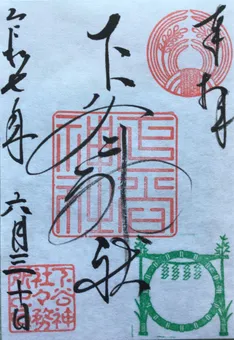 奉拝
下谷神社
令和七年
六月三十日
下谷神
社々務
所